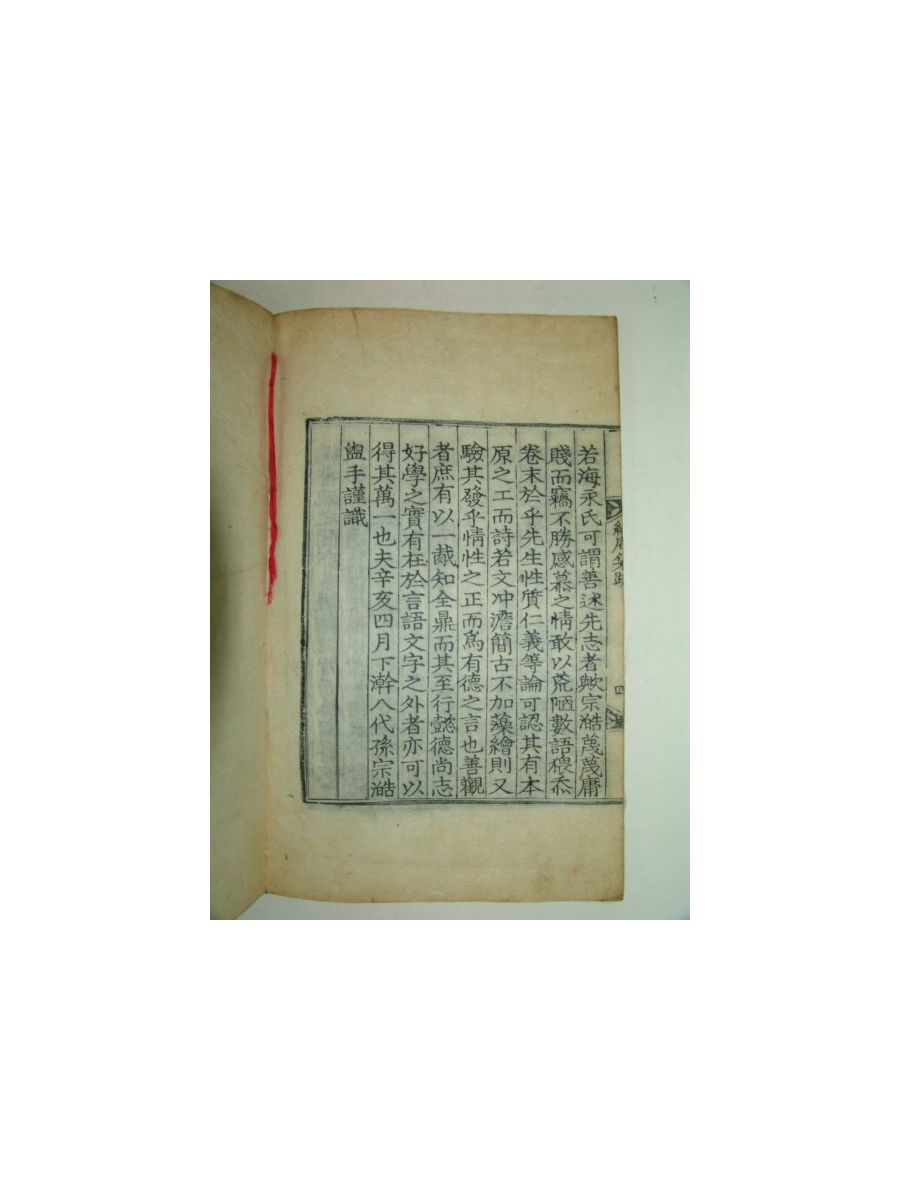 若海永氏可謂善述先志者歟宗皓蔑蔑庸
賤而竊不勝感慕之情敢以荒陋數語猥忝
卷末於乎先生性質仁義等論可認其有本
原之工而詩若文冲澹簡古不加藻繪則又
驗其發乎情性之正而爲有德之言也善觀
者庶有以一胾知全鼎而其至行懿德尚志
好學之實有在於言語文字之外者亦可以
得其萬一也夫辛亥四月下澣八代孫宗皓
盥手謹識
四